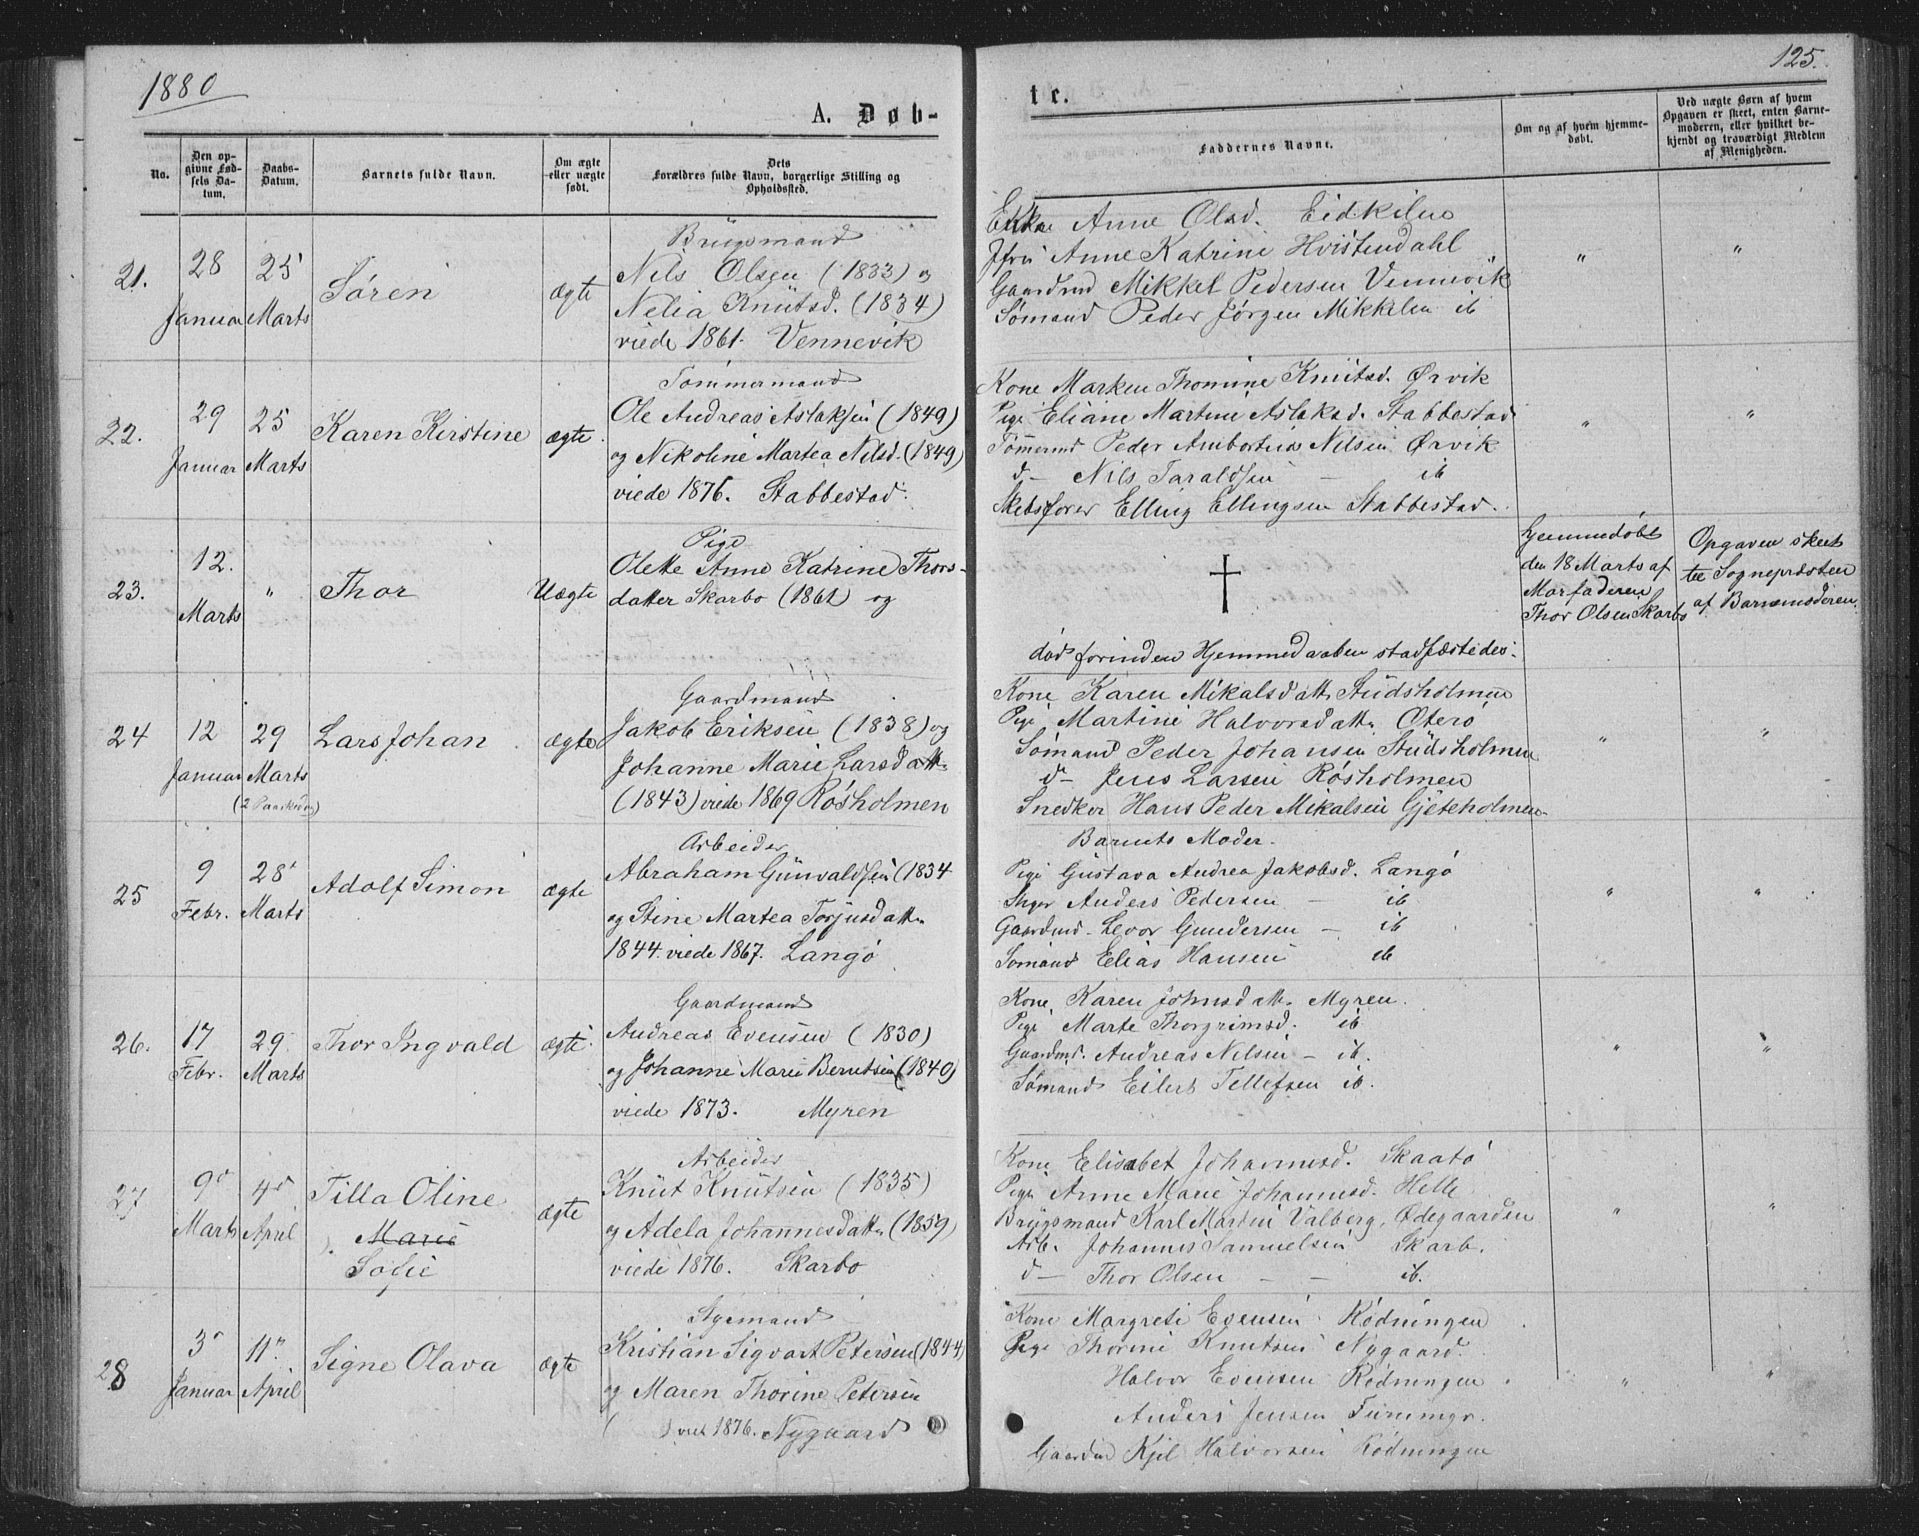 1880
125.
A. Døb-
te.
No.
Den op-
givne Fød-
sels Da-
tum.
Daabs-
Datum.
Barnets fulde Navn.
Om ægte
eller uægte
født.
Dets
Forældres fulde Navn, borgerlige Stilling og
Opholdssted.
Faddernes Navne.
Om og af hvem hjemme-
døbt.
Ved uægte Børn af hvem
Opgaven er skeet, enten Barne-
moderen, eller hvilket be-
kjendt og troværdigt Medlem
af Menigheden.
21.
28
Januar
25
Marts
Søren
ægte
Brügsmand
Nils Olsen (1833) og
Nelia Knütsd. (1834)
viede 1861. Vennevik
Enke Anne Olsd. Eidkilen
Jfru Anne Katrine Hvistendahl
Gaardmd Mikkel Pedersen Vennevik
Sømand Peder Jørgen Mikkelsen ib
"
"
22.
29
Januar
25
Marts
Karen Kirstine
ægte
Tømmermand
Ole Andreas Aslaksen (1849)
og Nikoline Martea Nilsd. (1849)
viede 1876. Stabbestad.
Kone Marken Thomine Knütsd. Ørvik
Pige Eliane Martine Aslaksd. Stabbestad
Tømmermd Peder Ambortius Nilsen Ørvik
d— Nils Taraldsen — ib
Skibsfører Elling Ellingsen Stabbestad.
"
"
23.
12.
Marts
"
Thor
Uægte
Pige
Olette Anne Katrine Thors-
datter Skarbo (1861) og
†
død forinden Hjemmedaaben stadfæstedes.
Hjemmedøbt
den 18 Marts af
Morfaderen
Thor Olsen Skarbo
Opgaven skeet
til Sognepræsten
af Barnemoderen.
24
12
Januar
29
Marts
(2 Paaskedag)
Lars Johan
ægte
Gaardmand
Jakob Eriksen (1838) og
Johanne Marie Larsdattr
(1843) viede 1869 Røsholmen
Kone Karen Mikalsdattr Stüdsholmen
Pige Martine Halvorsdattr Oterø
Sømand Peder Johansen Stüdsholmen
d— Jens Larsen Røsholmen
Snedker Hans Peder Mikalsen Gjeteholmen
"
"
25
9
Febr.
28
Marts
Adolf Simon
ægte
Arbeider
Abraham Günvaldsen (1834
og Stine Martea Torjusdattr
1844. viede 1867. Langø
Barnets Moder.
Pige Gustava Andrea Jakobsd. Langø
Anders Pedersen — ib
Gaardmd. Levor Gundersen — ib
Sømand Elias Hansen ib
"
"
26.
17
Febr.
29
Marts
Thor Ingvald
ægte
Gaardmand
Andreas Evensen (1830)
og Johanne Marie Berntsen (1840)
viede 1873. Myren
Kone Karen Johnsdattr Myren.
Pige Marte Thorgrimsd. ib
Gaardmd. Andreas Nilsen — ib.
Sømand Eilert Tellefsen ib.
"
"
27
9
Marts
4
April
Tilla Oline
Marie
Sofie
ægte
Arbeider
Knüt Knütsen (1835)
og Adela Johannesdattr (1859)
viede 1876. Skarbo
Kone Elisabet Johannesd. Skaatø
Pige Anne Marie Johannesd. Helle
Brügsmand Karl Martin Valberg, Ødegaarden
Arb. Johannes Samuelsen Skarb.
d— Thor Olsen — — ib.
"
"
28
3
Januar
11
April
Signe Olava
ægte
Styrmand
Kristian Sigvart Petersen (1844)
og Maren Thorine Petersen
( ) viet 1876. Nygaard
Kone Margrete Evensen Rødningen
Pige Thorine Knutsen Nygaard.
Halvor Evensen Rødningen
Anders Jensen
Gaardmd Kjel Halvorsen Rødningen
"
"